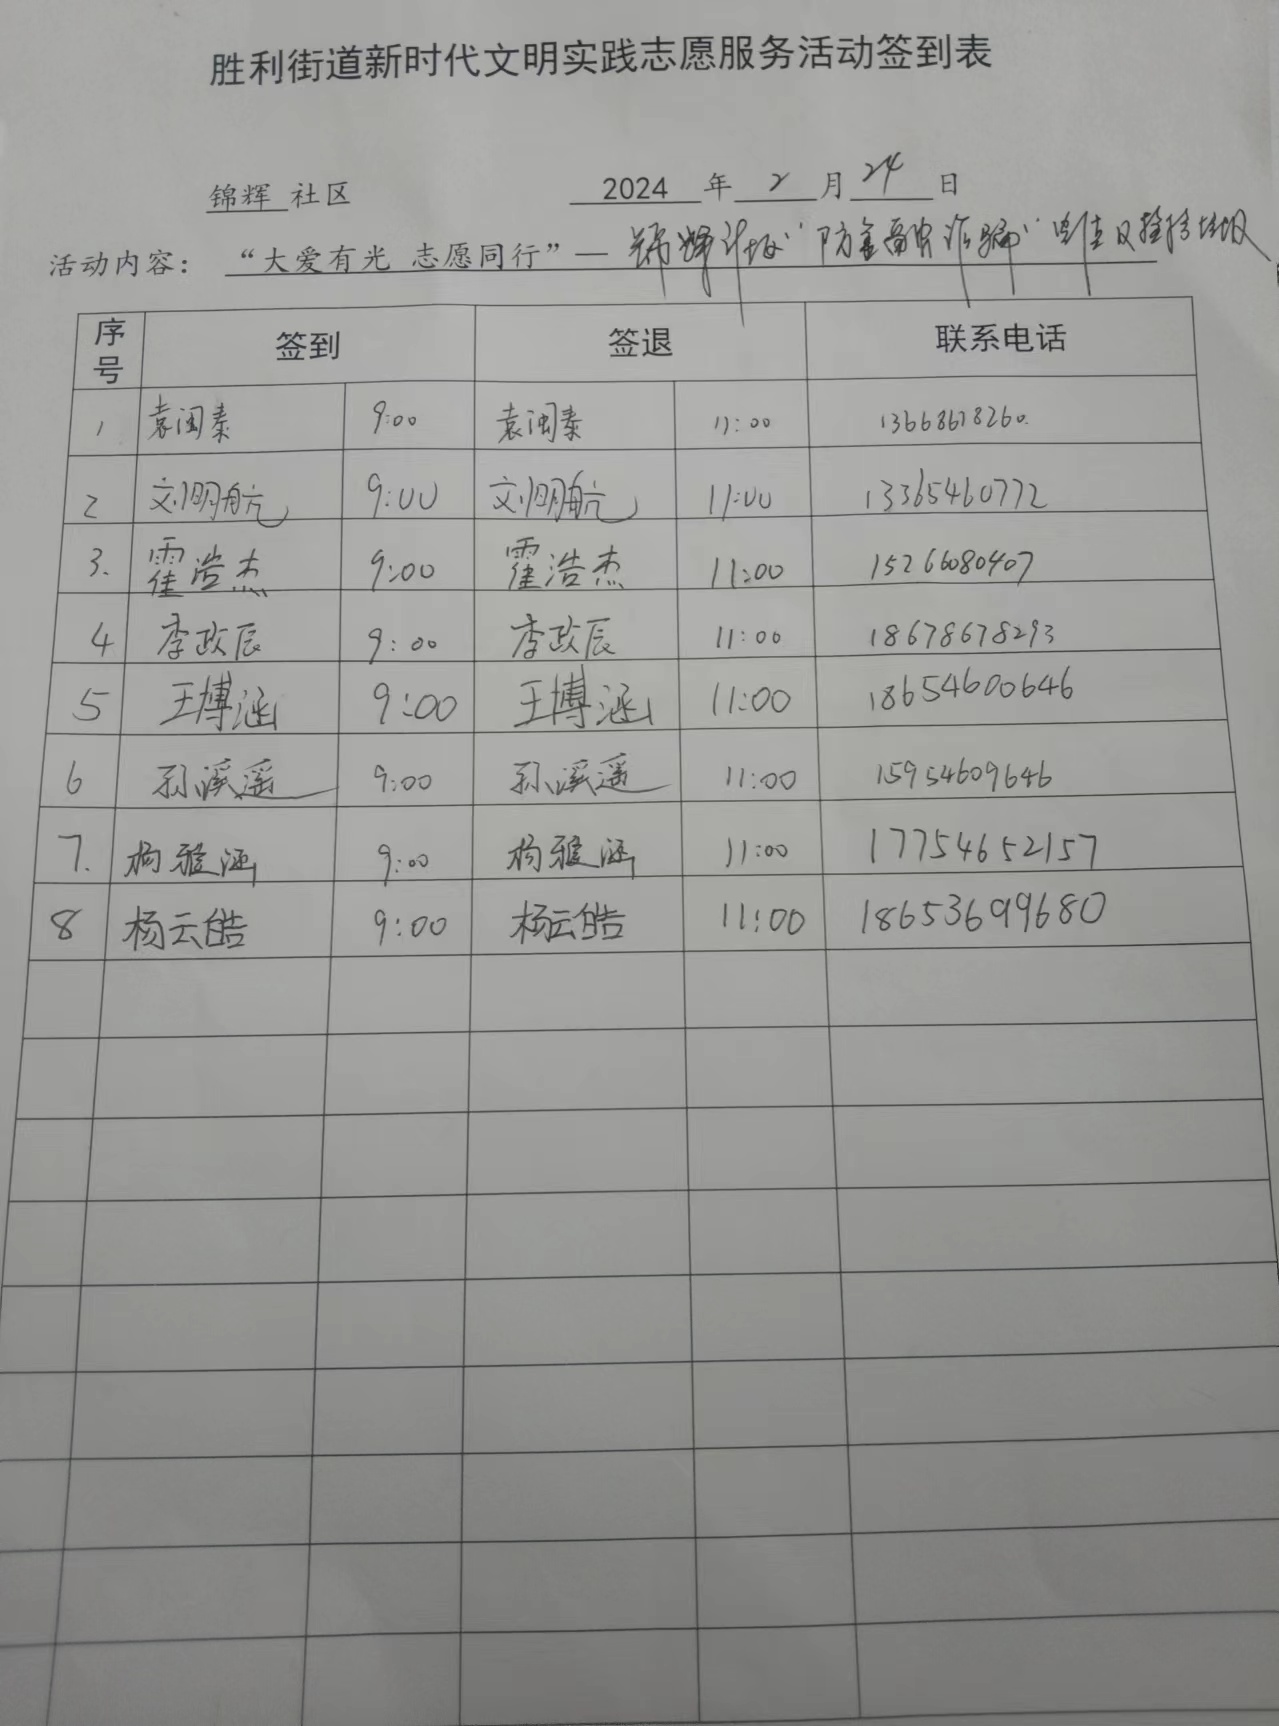 胜利街道新时代文明实践志愿服务活动签到表
锦辉 社区 2024 年 2 月 24 日
活动内容： “大爱有光 志愿同行”— 锦辉社区“防金融诈骗”宣传及捡拾垃圾
序号 签到 签退 联系电话
1 袁闵泰 9:00 袁闵泰 11:00 13668618260.
2 刘明航 9:00 刘明航 11:00 13365460772
3. 霍浩杰 9:00 霍浩杰 11:00 15266080407
4 李政辰 9:00 李政辰 11:00 18678678293
5 王博涵 9:00 王博涵 11:00 18654600646
6 孙溪遥 9:00 孙溪遥 11:00 15954609646
7. 杨雅涵 9:00 杨雅涵 11:00 17754652157
8 杨云皓 9:00 杨云皓 11:00 18653699680